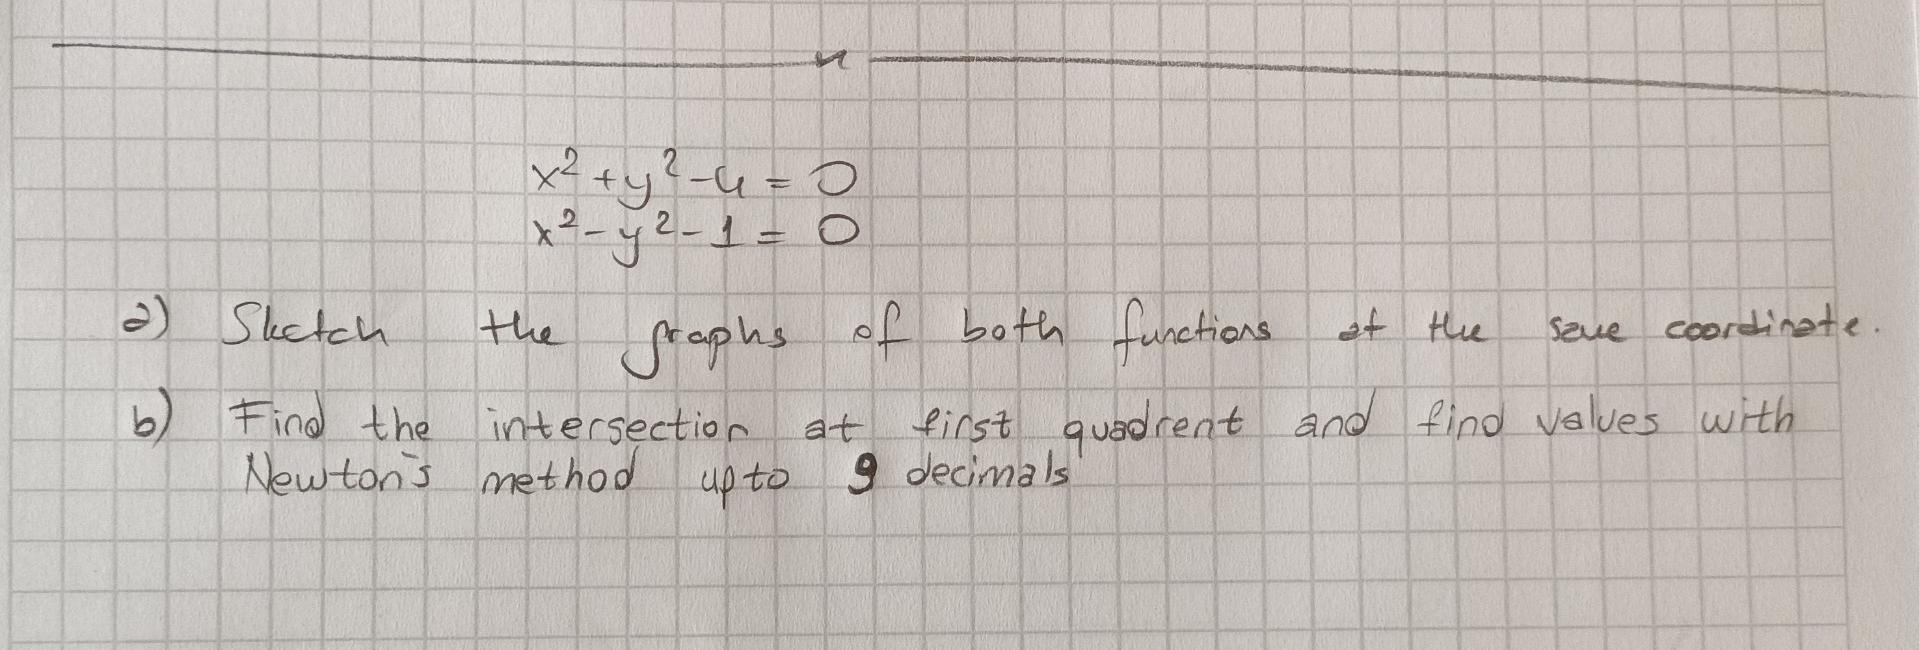 x²+y²-4 = 0
x²-y²-1 = 0
a) Sketch the graphs of both functions at the same coordinate.
b) Find the intersection at first quadrent and find values with
Newton's method upto 9 decimals